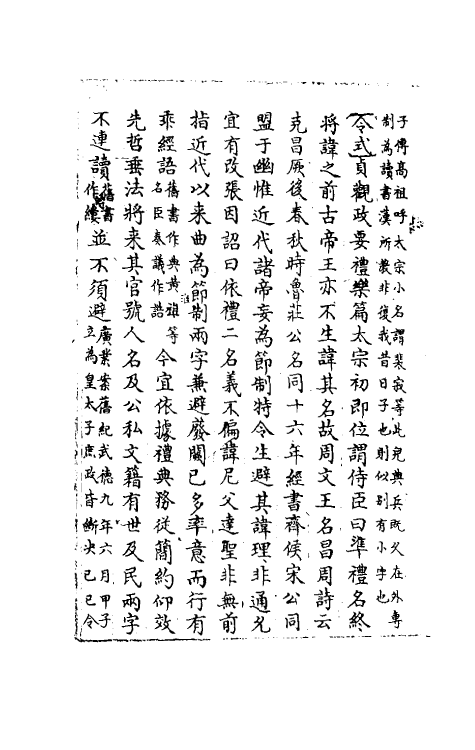 子傳高祖呼太宗小名謂裴寂等此兒典兵既久在外專
制為讀書漢所教非復我昔日子也則似別有小字也
令式貞觀政要禮樂篇太宗初即位謂侍臣曰準禮名終
將諱之前古帝王亦不生諱其名故周文王名昌周詩云
克昌厥後春秋時魯莊公名同十六年經書齊侯宋公同
盟于幽惟近代諸帝妄為節制特令生避其諱理非通允
宜有改張因詔曰依禮二名義不偏諱尼父達聖非無前
指近代以來曲為節制兩字兼避廢闕已多率意而行有
乖經語舊書作典黃雅等名臣奏議作誥今宜依據禮典務從簡約仰效
先哲垂法將來其官號人名及公私文籍有世及民兩字
不連讀舊書作續並不須避廣業案舊紀武德九年六月甲子立為皇太子庶政皆斷決己巳令